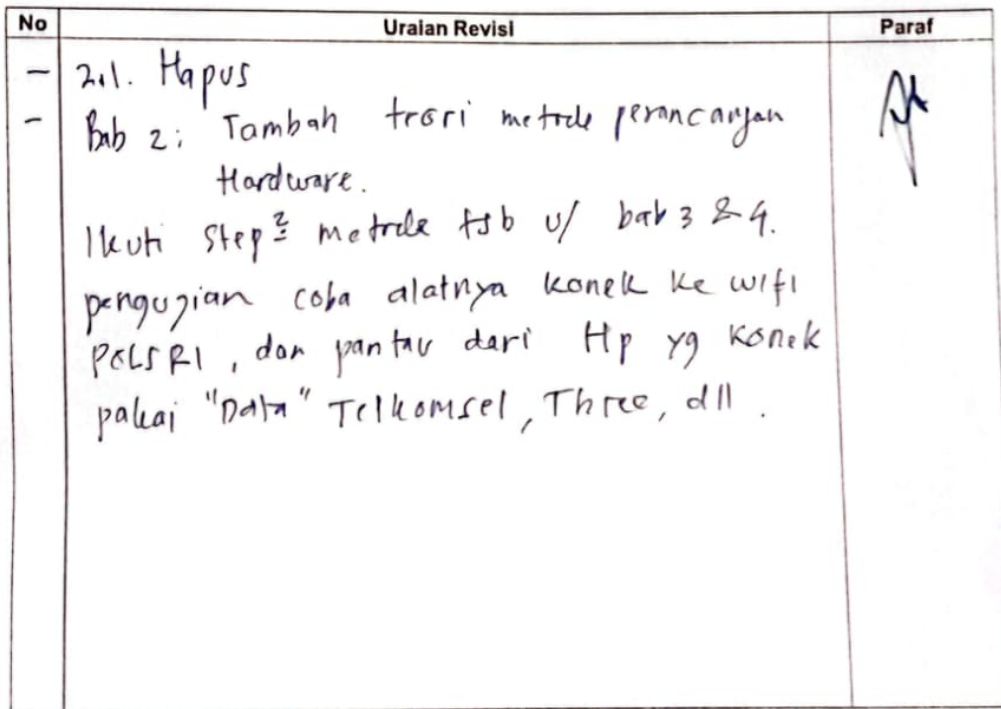 No Uraian Revisi Paraf
- 2.1. Hapus
- Bab 2: Tambah teori metode perancangan
Hardware.
Ikuti Step² metode tsb u/ bab 3 & 4.
pengujian coba alatnya konek ke wifi
POLSRI, dan pantau dari Hp yg konek
pakai "Data" Telkomsel, Three, dll.